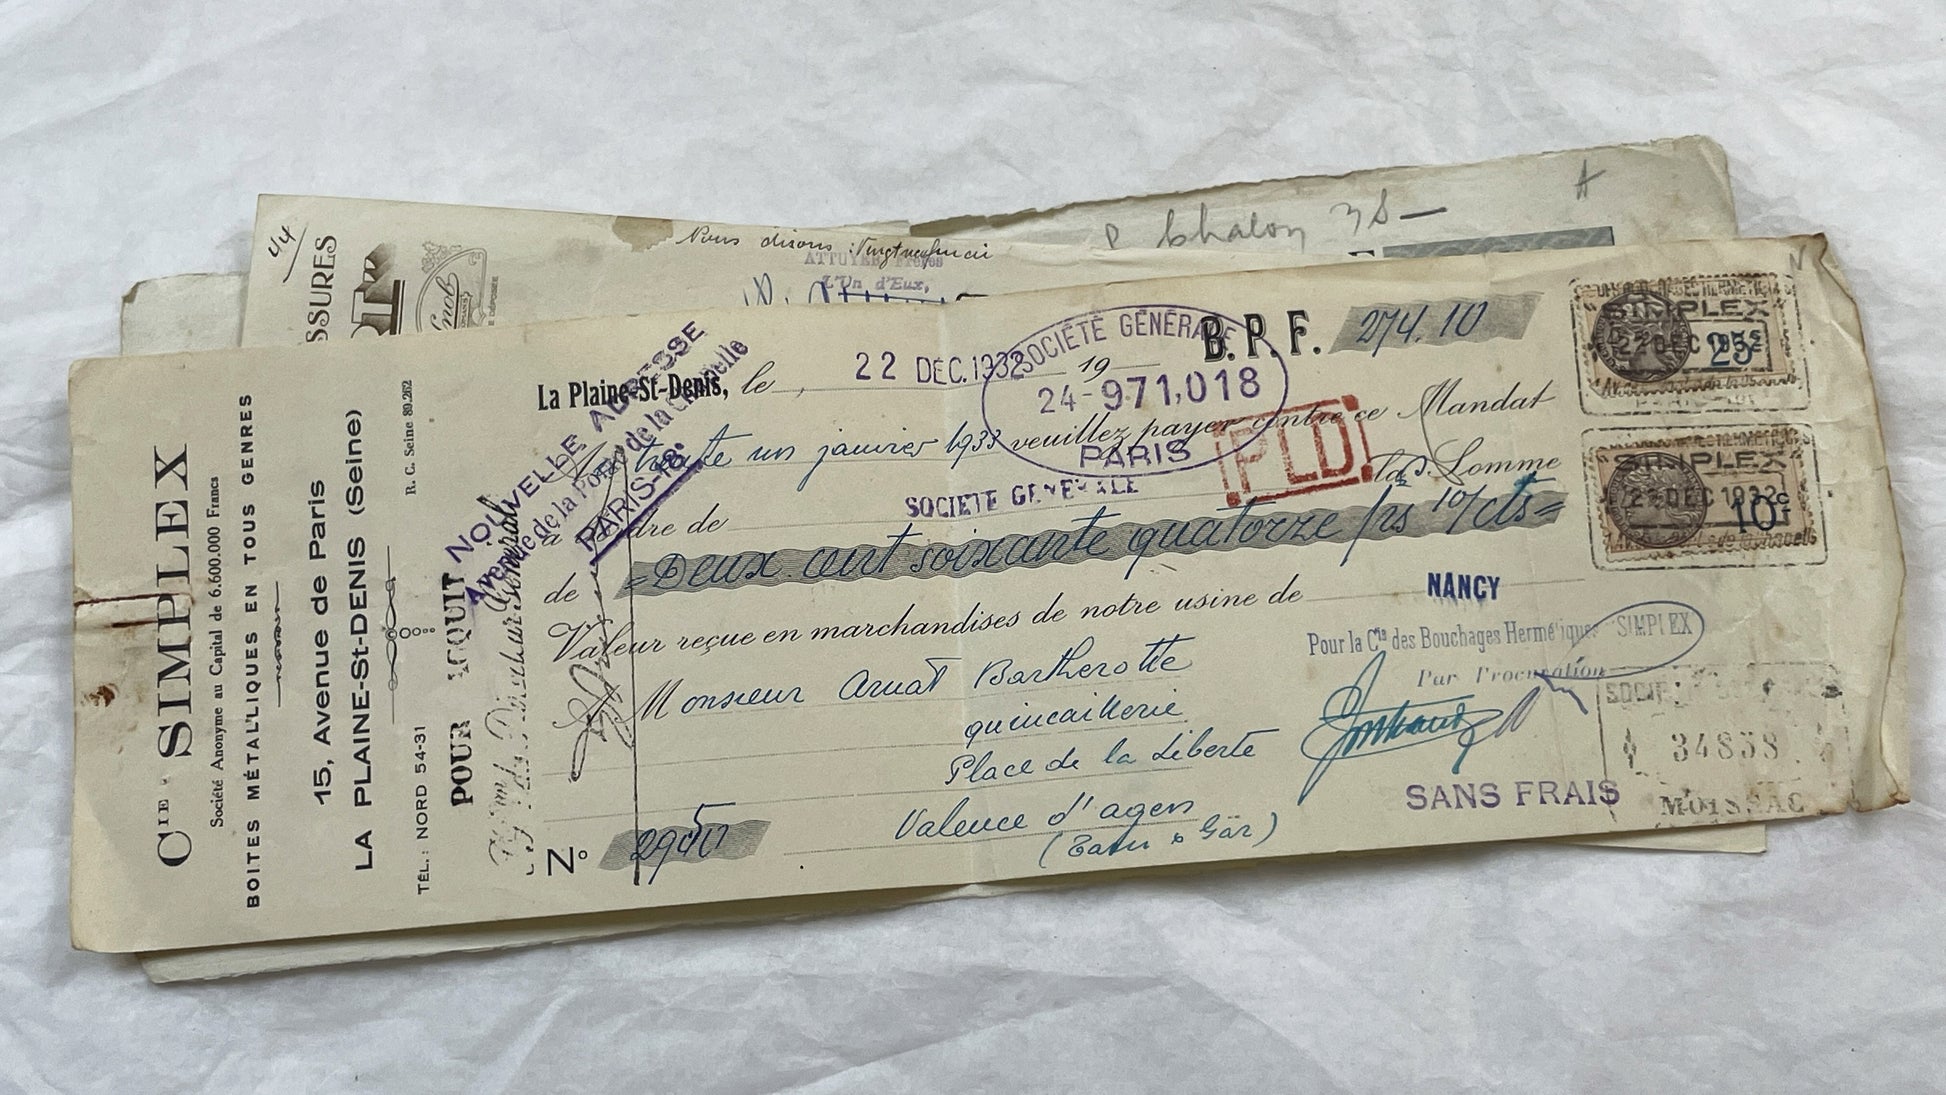 Cie SIMPLEX
Société Anonyme au Capital de 6.600.000 Francs
BOITES MÉTALLIQUES EN TOUS GENRES
15, Avenue de Paris
LA PLAINE-St-DENIS (Seine)
TÉL.: NORD 54-31
R. C. Seine 80.262
POUR ACQUIT
NOUVELLE ADRESSE
Avenue de la Porte de la Chapelle
PARIS-18e
SSURES
Nous disons : Vingt neuf
L'Un d'Eux,
P Chalon
La Plaine-St-Denis, le 22 DEC. 1932 19
B. P. F. 274.10
SOCIÉTÉ GÉNÉRALE
24-971,018
PARIS
trente un janvier 1933 veuillez payer contre ce Mandat
PLD
à l'ordre de SOCIETE GENERALE la Somme
de =Deux cent soixante quatorze frs 10/cts=
Valeur reçue en marchandises de notre usine de NANCY
Monsieur Arnat Bartherotte
quincaillerie
Place de la Liberte
Valence d'agen
(Tarn & Gar)
No
Pour la Cie des Bouchages Hermétiques SIMPLEX
Par Procuration
SANS FRAIS
SIMPLEX
22 DEC 1932
25c
SIMPLEX
22 DEC 1932
10c
34858
MOISSAC